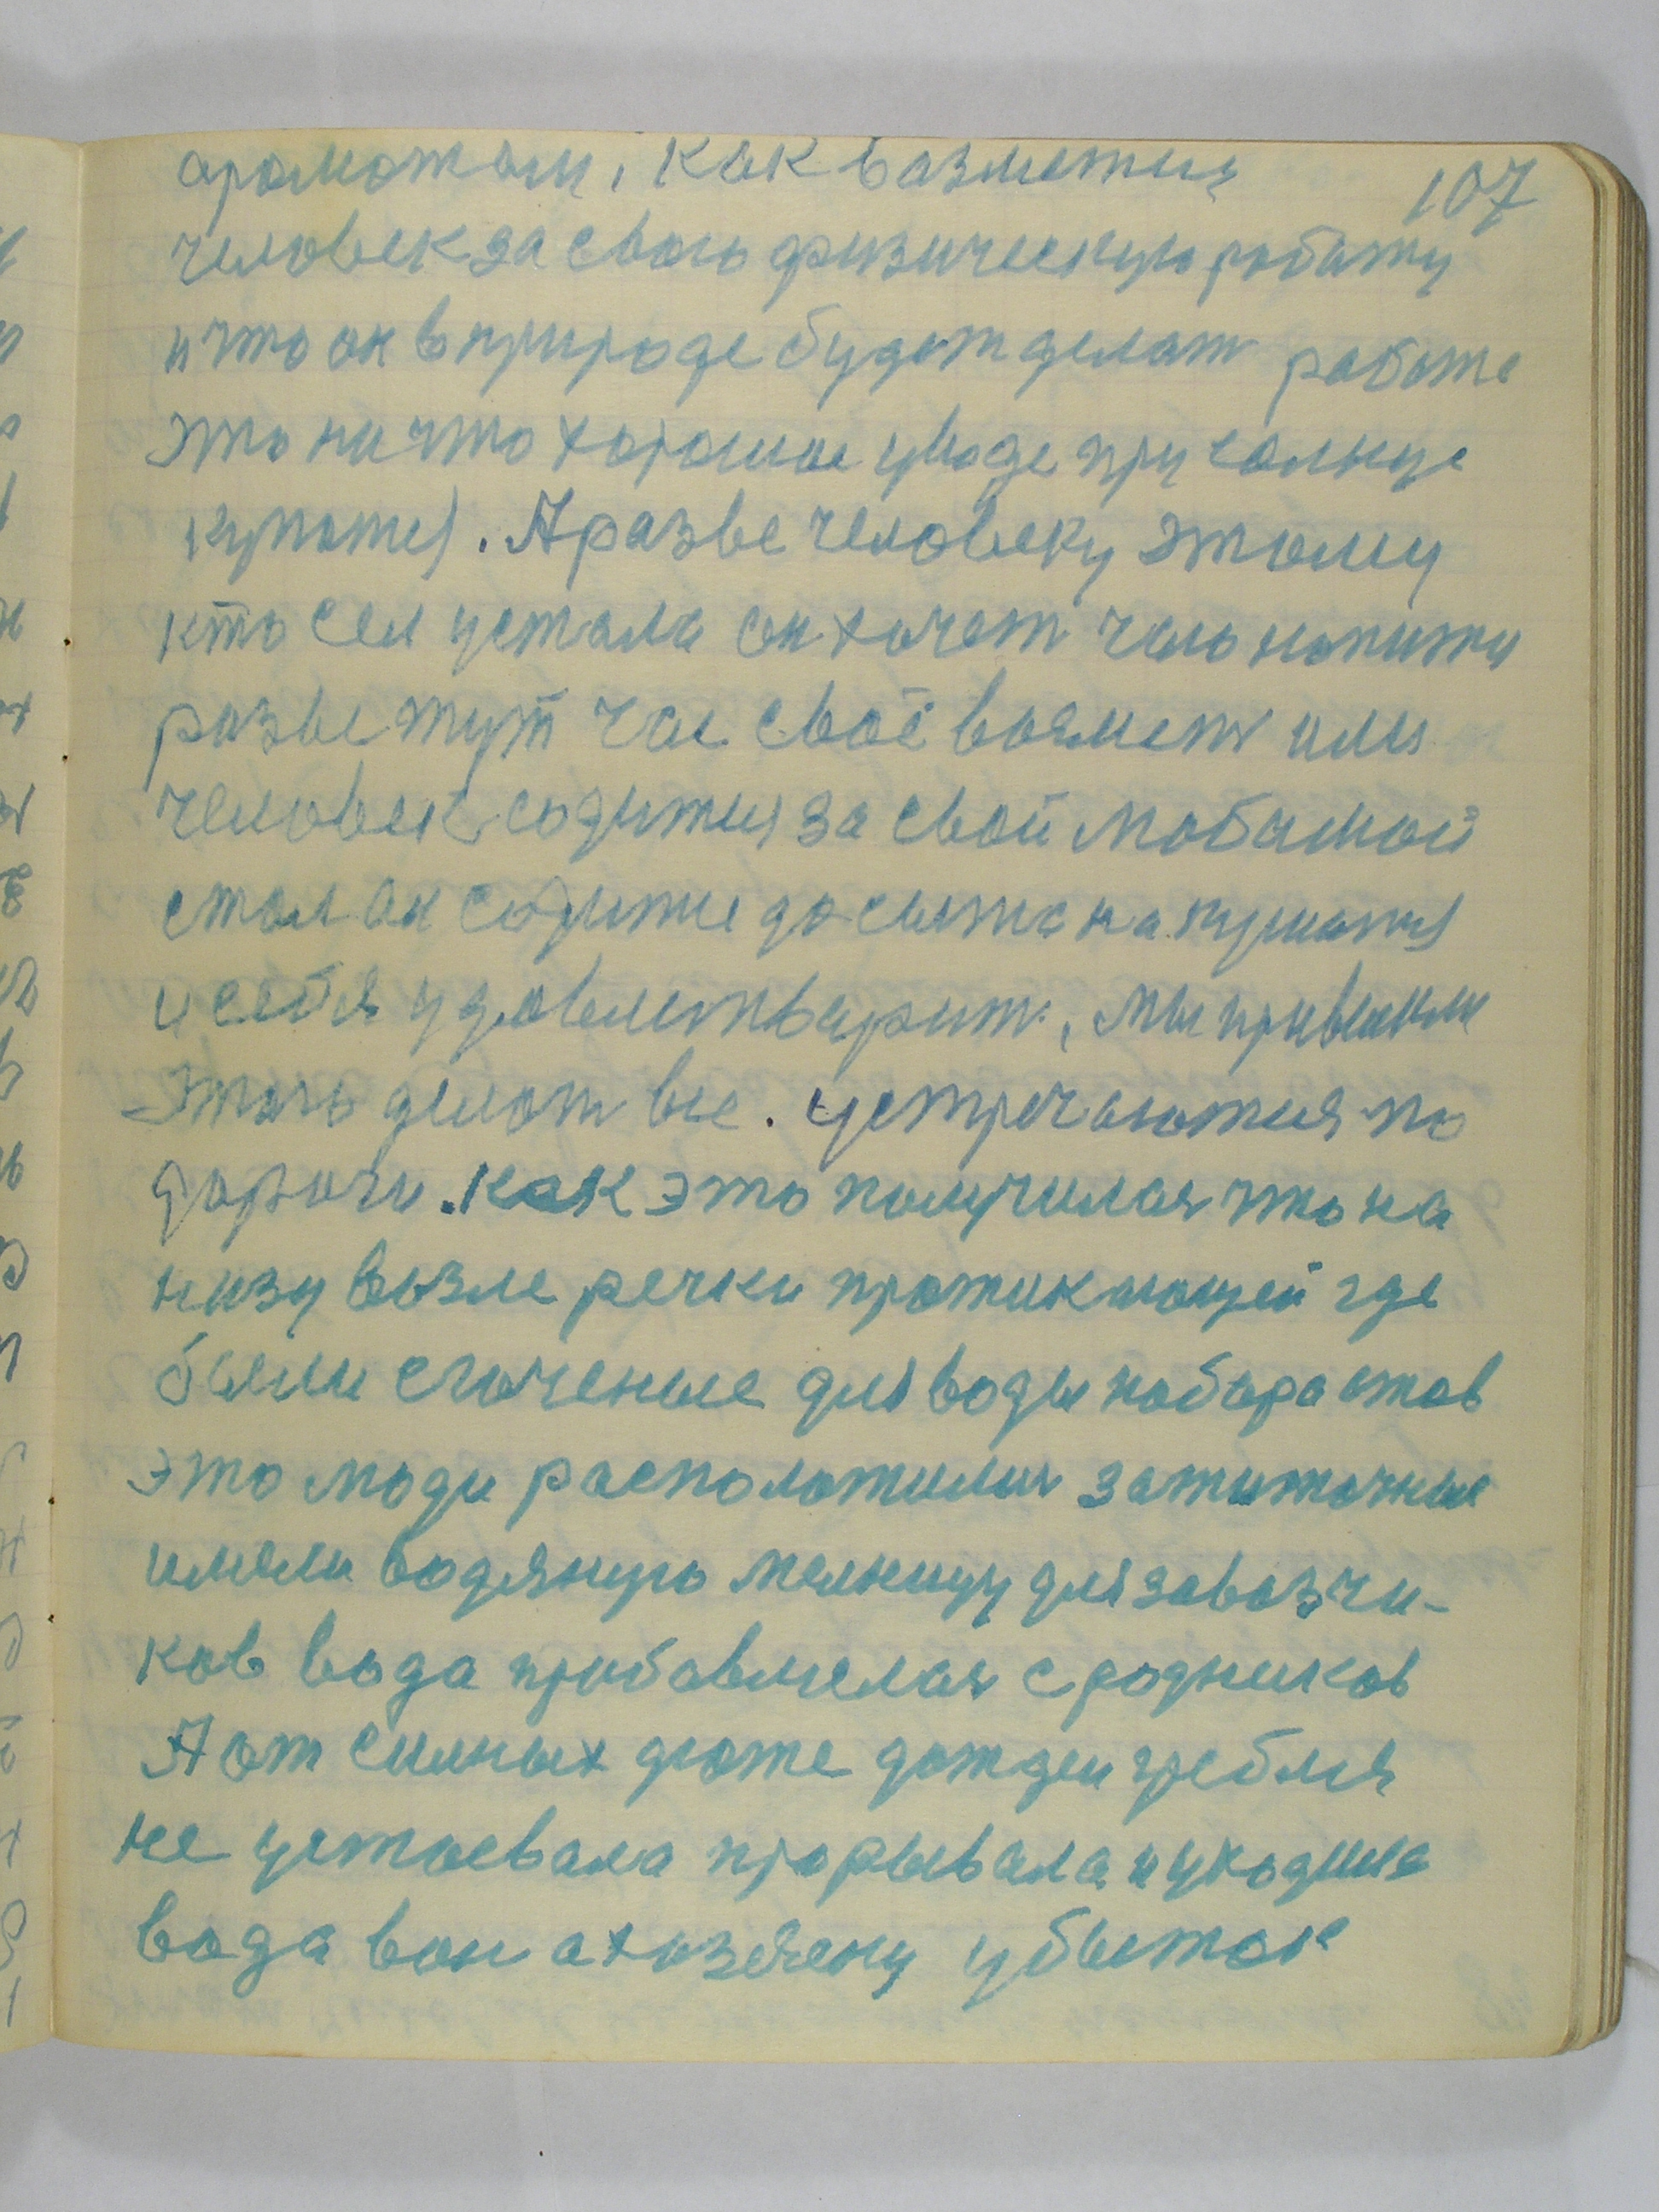 107
ароматом, как взяметця
человек за свою физическую работу
и что он в природе будет делат работа
это ни что хорошое у воде при солнце
купатся. А разве человеку этому
кто сел устала он хочет чаю напитца
разве тут час своё возмет или
человек содитця за свой любимой
стол он содитце до сыта накушатся
и себя удовлетварит, мы привыкли
этого делат все. устречаються по
дороги. Как это получилас что на
низу возле речки протикающей где
были сточеные для воды набора став
это люди располажилис зажиточные
имели водяную мелницу для завозчи-
ков вода прибавлялас с родников
А от силных дюже дождеи гребля
не устоевала прорывала и уходила
вода вон а хозяену убыток